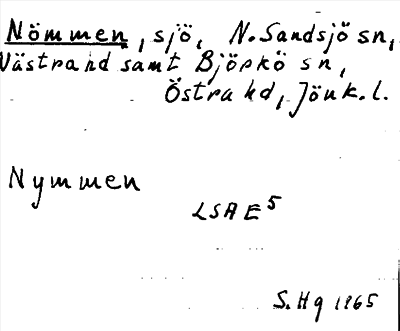 Nömmen, sjö, N. Sandsjö sn,
Västra hd samt Björkö sn,
Östra hd, Jönk. l.
Nymmen
LSA E5
S. Hg 1965